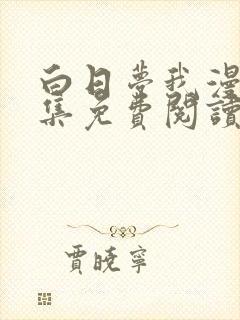 白日夢我漫
集免費閱讀
賈曉寧